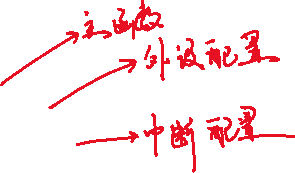 主函数
外设配置
中断配置